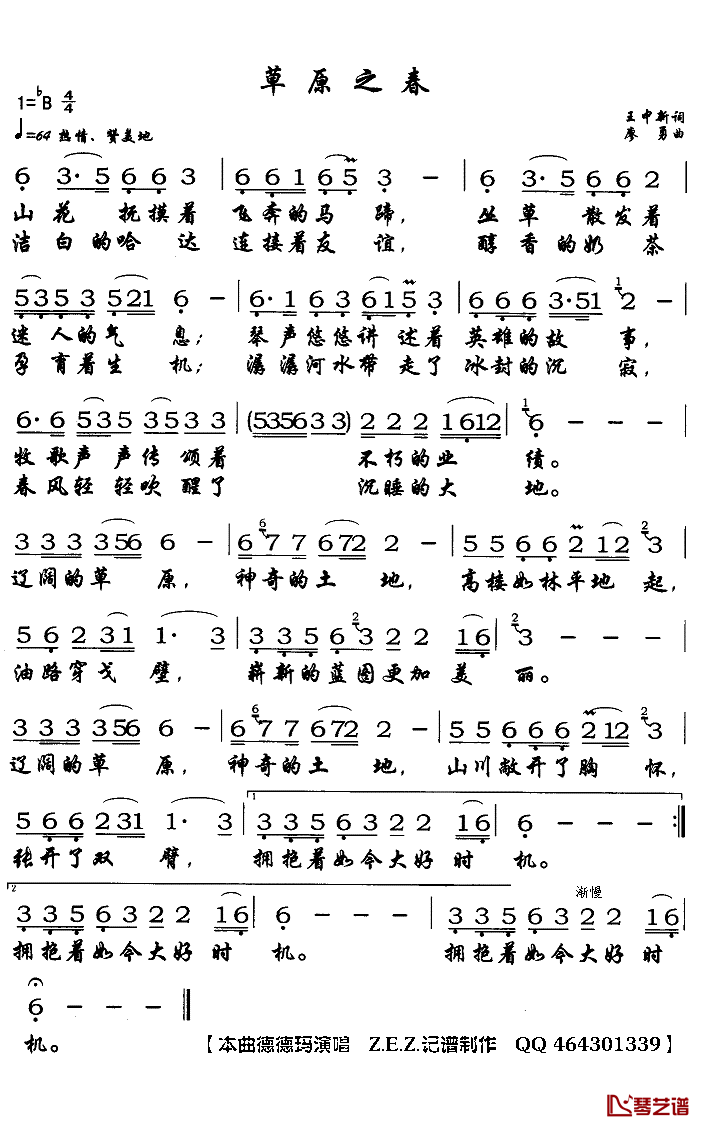 草原之春
1=♭B 4/4
王中新词
♩=64 热情、赞美地
廖勇曲
6 3·5 6 6 3 | 6 6 1 6 5 3 - | 6 3·5 6 6 2
山花 抚摸着 飞奔的马 蹄， 坐草 散发着
洁白的哈 达 连接着友 谊， 醇香的奶 茶
5 3 5 3 5 2 1 6 - | 6·1 6 3 6 1 5 3 | 6 6 6 3·5 1 2 -
迷 人的气 息； 琴声悠悠讲 述着 英雄的故 事，
孕 育着生 机； 潺潺河水带 走了 冰封的沉 寂，
6·6 5 3 5 3 5 3 3 | (5 3 5 6 3 3) 2 2 2 1 6 1 2 | 1 6 - - -
牧歌声 声传 颂着 不朽的业 绩。
春风轻 轻吹 醒了 沉睡的大 地。
3 3 3 3 5 6 6 - | 6 6 7 7 6 7 2 2 - | 5 5 6 6 2 1 2 2 3
辽阔的草 原， 神奇的土 地， 高楼如林平地 起，
5 6 2 3 1 1· 3 | 3 3 5 6 2 3 2 2 1 6 | 2 3 - - -
油路穿戈 壁， 崭新的蓝图更加 美 丽。
3 3 3 3 5 6 6 - | 6 6 7 7 6 7 2 2 - | 5 5 6 6 6 2 1 2 3
辽阔的草 原， 神奇的土 地， 山川敞开了胸 怀，
5 6 6 2 3 1 1· 3 | 1 3 3 5 6 3 2 2 1 6 | 6 - - - :‖
张开了双 臂， 拥抱着如今大好 时 机。
2 渐慢
3 3 5 6 3 2 2 1 6 | 6 - - - | 3 3 5 6 3 2 2 1 6
拥抱着如今大好 时 机。 拥抱着如今大好 时
6 - - - ‖
机。
【本曲德德玛演唱 Z.E.Z.记谱制作 QQ 464301339】
琴艺谱